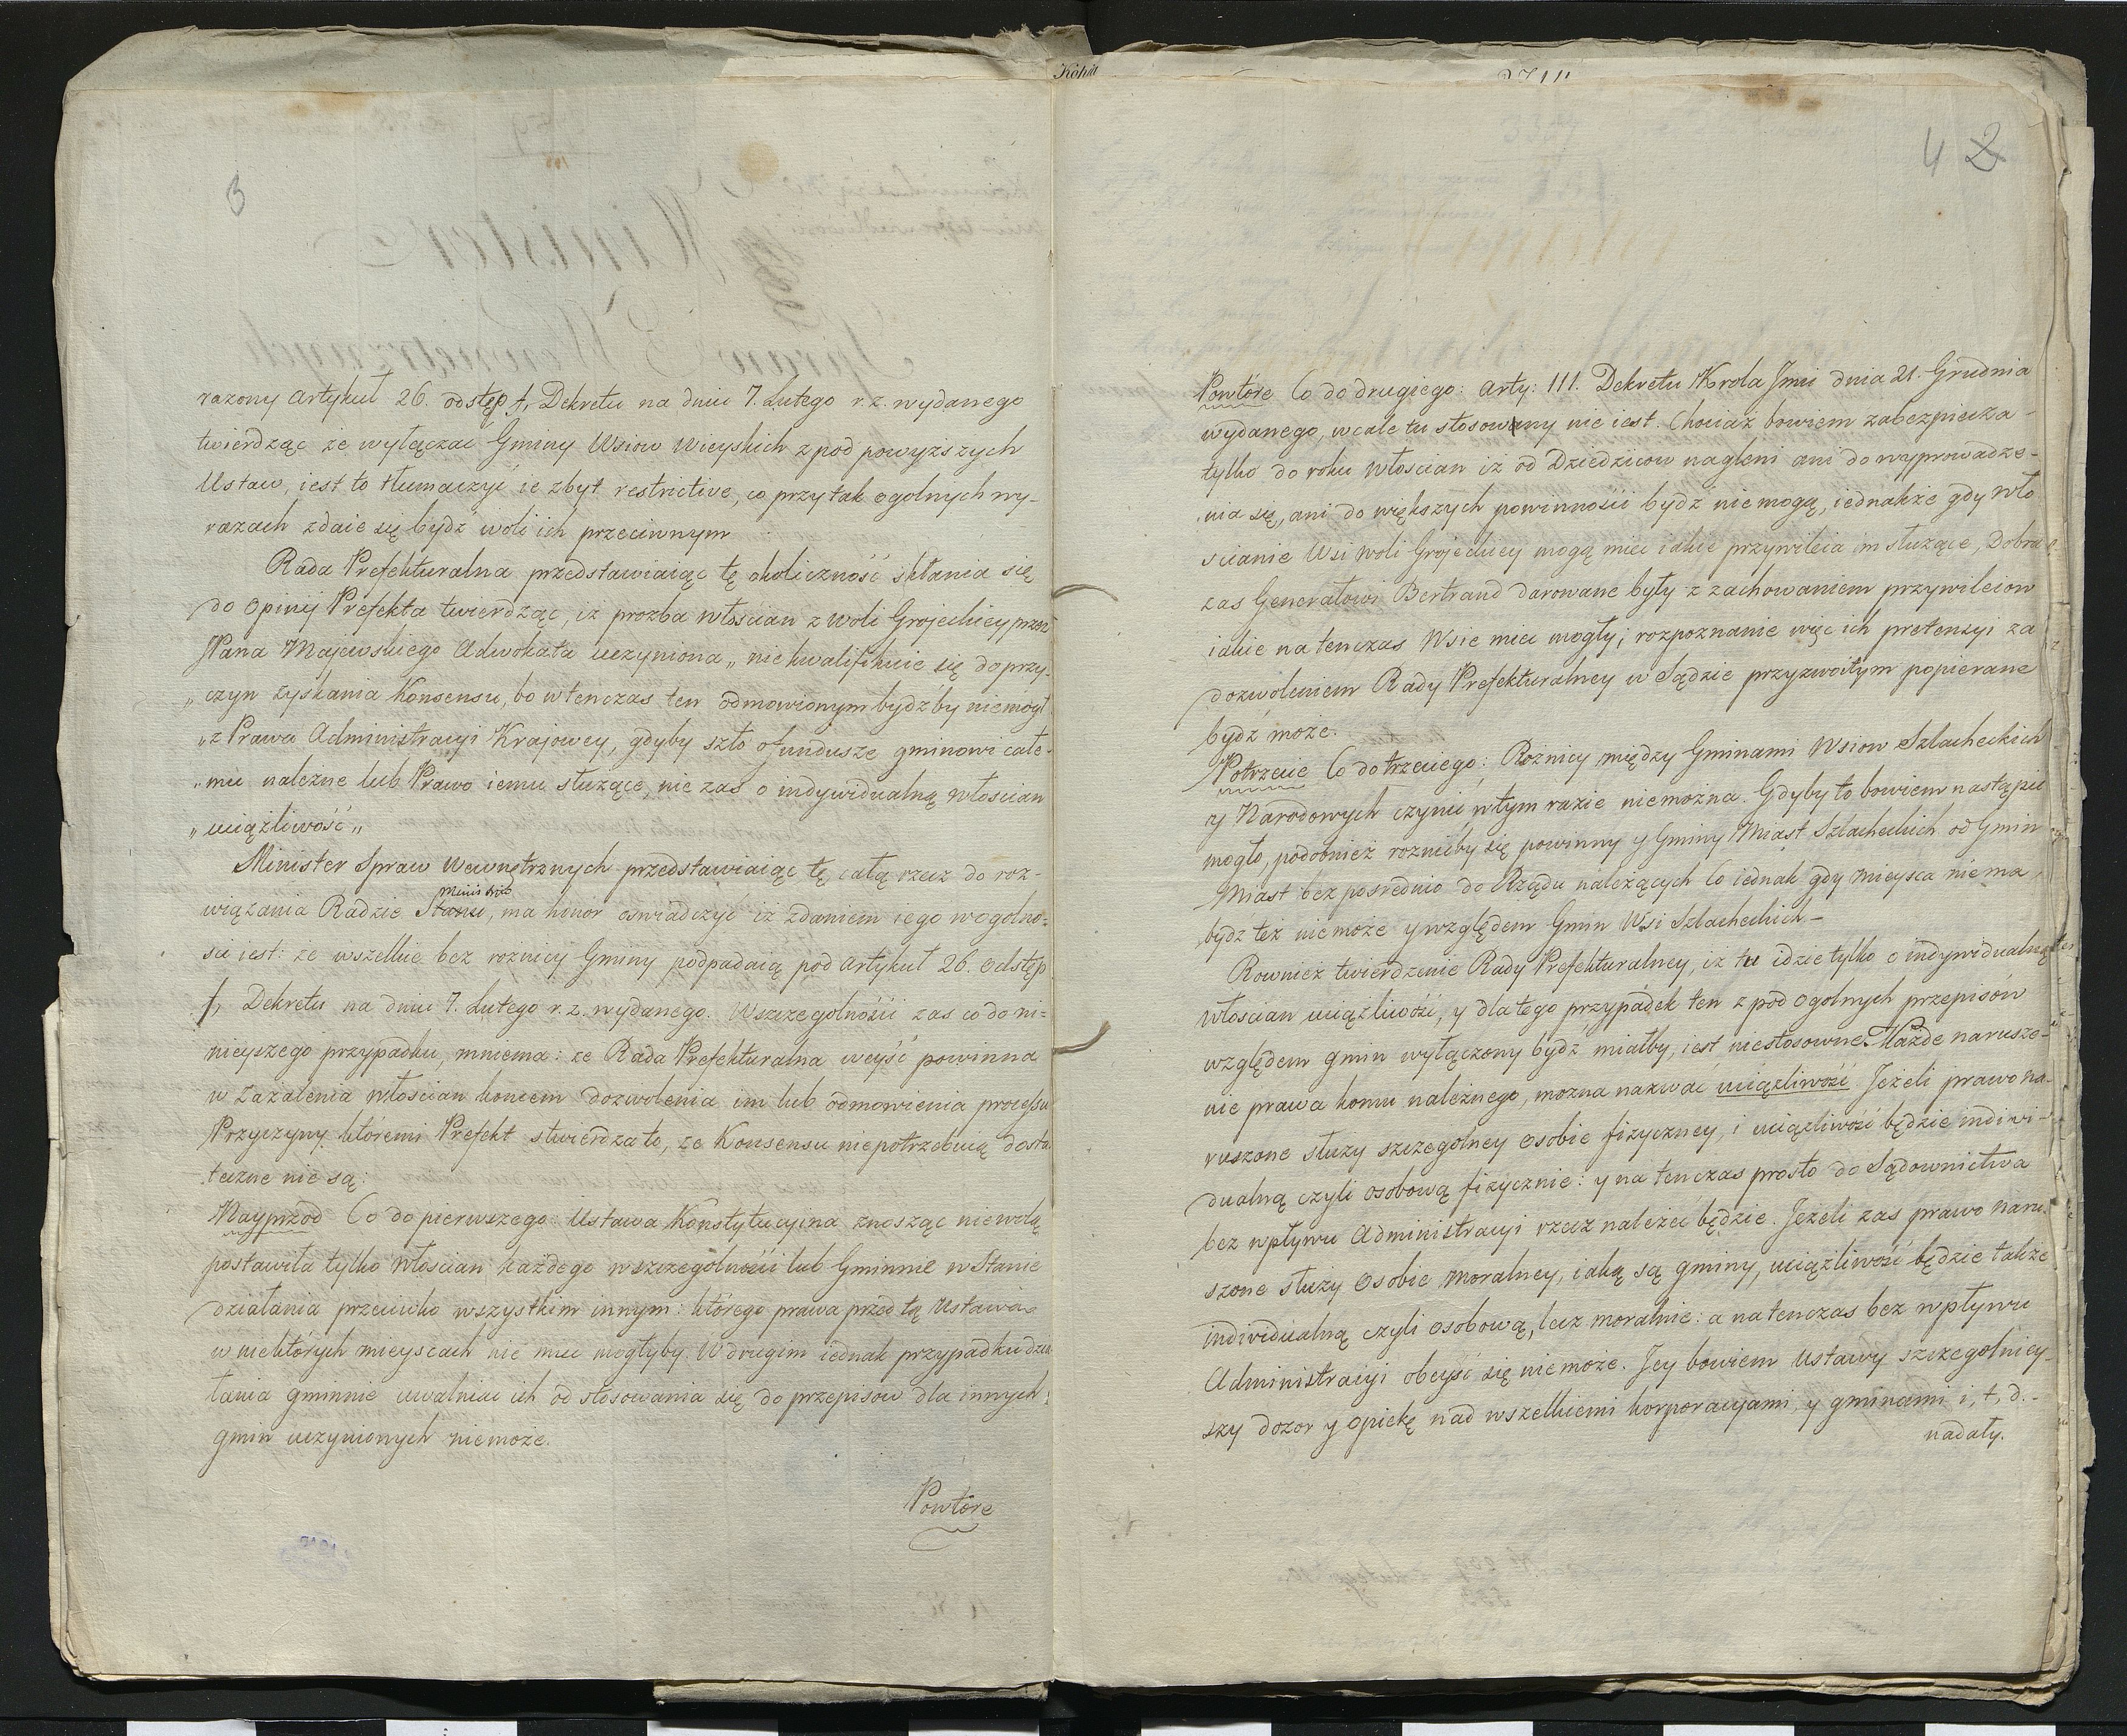 3
razony artykuł 26. odstęp f, Dekretu na dniu 7. Lutego r.z. wydanego
twierdząc że wyłączac Gminy Wsiow Wieyskich z pod powyższych
Ustaw, iest to tłumaczyć ie zbyt restrictive, co przy tak ogolnych wy-
razach zdaie się bydz woli ich przeciwnym
Rada Prefekturalna przedstawiaiąc tę okoliczność skłania się
do opinij Prefekta twierdząc, iż prozba włoscian z Woli Grojeckiey przez
Pana Majewskiego Adwokata uczyniona „ nie kwalifikuie się do przy-
„ czyn zyskania Konsensu, bo wtenczas ten odmowionym bydzby niemogł
„ z Prawa Administracyi Krajowey, gdyby szło o fundusze gminowi całe-
„ mu należne lub Prawo iemu służące, nie zas o indywidualną włoscian
„ uciążliwość „
Minister Spraw Wewnętrznych przedstawiaiąc tę całą rzecz do roz-
Ministrów
wiązania Radzie Stanu, ma honor oswiadczyć iż zdaniem iego w ogolno-
sci iest: że wszelkie bez rożnicy Gminy podpadaią pod artykuł 26. odstęp
f, Dekretu na dniu 7. Lutego r.z. wydanego. W szczegolności zas co do ni-
nieyszego przypadku, mniema: że Rada Prefekturalna weyść powinna
w Zażalenia włoscian koncem dozwolenia im lub odmowienia processu
Przyczyny któremi Prefekt stwierdza to, że Konsensu niepotrzebuią dosta
teczne nie są:
Nayprzod Co do pierwszego: Ustawa Konstytucyina znosząc niewolą
postawiła tylko włoscian każdego w szczególności lub Gminnie w Stanie
działania przeciwko wszystkim innym: którego prawa przed tą Ustawą
w niektórych mieyscach nie miec mogłyby. W drugim iednak przypadku dzia
łania gminnie uwalniac ich od stosowania się do przepisow dla innych
gmin uczynionych niemoże.
Powtóre
4 2
Powtóre Co do drugiego: arty: 111. Dekretu Krola Jmci dnia 21. Grudnia
wydanego, wcale tu stosowany nie iest. Chociaż bowiem zabezpiecza-
tylko do roku włoscian iż od Dziedzicow nagleni ani do wyprowadze-
nia się, ani do większych powinności bydz nie mogą, iednakże gdy wło
scianie Wsi Woli Grojeckiey mogą miec iakie przywileia im służące, Dobra
zas Generałowi Bertrand darowane były z zachowaniem przywileiow
iakie na tenczas Wsie miec mogły; rozpoznanie więc ich pretensyi za
dozwoleniem Rady Prefekturalney w Sądzie przyzwoitym popierane
bydz może.
Potrzecie Co do trzeciego: Rożnicy między Gminami Wsiow Szlacheckich
y Narodowych czynić w tym razie niemożna. Gdyby to bowiem nastąpić
mogło, podobnież roznicby się powinny y Gminy Miast Szlacheckich od Gmin
Miast bez posrednio do Rządu należących Co iednak gdy mieysca nie ma,
bydz też nie może y względem Gmin Wsi Szlacheckich-
Rownież twierdzenie Rady Prefekturalney, iż tu idzie tylko o indywidualną
włoscian uciążliwość, y dlatego przypadek ten z pod ogolnych przepisów
względem gmin wyłączony bydz miałby, iest niestosowne. Każde narusze-
nie prawa komu należnego, można nazwać uciążliwość. Jeżeli prawo na-
ruszone służy szczegolney osobie fizyczney, i uciążliwość będzie indiwi-
dualną czyli osobową fizycznie: y na tenczas prosto do Sądownictwa
bez wpływu Administracyi rzecz należeć będzie. Jeżeli zas prawo naru-
szone służy osobie moralney, iaką są gminy, uciążliwość będzie także
individualną czyli osobową, lecz moralnie: a na tenczas bez wpływu
Administracyi obeyść się niemoże. Jey bowiem Ustawy szczegolniey-
szy dozor y opiekę nad wszelkiemi korporacyami, y gminami i, t, d.-
nadały.